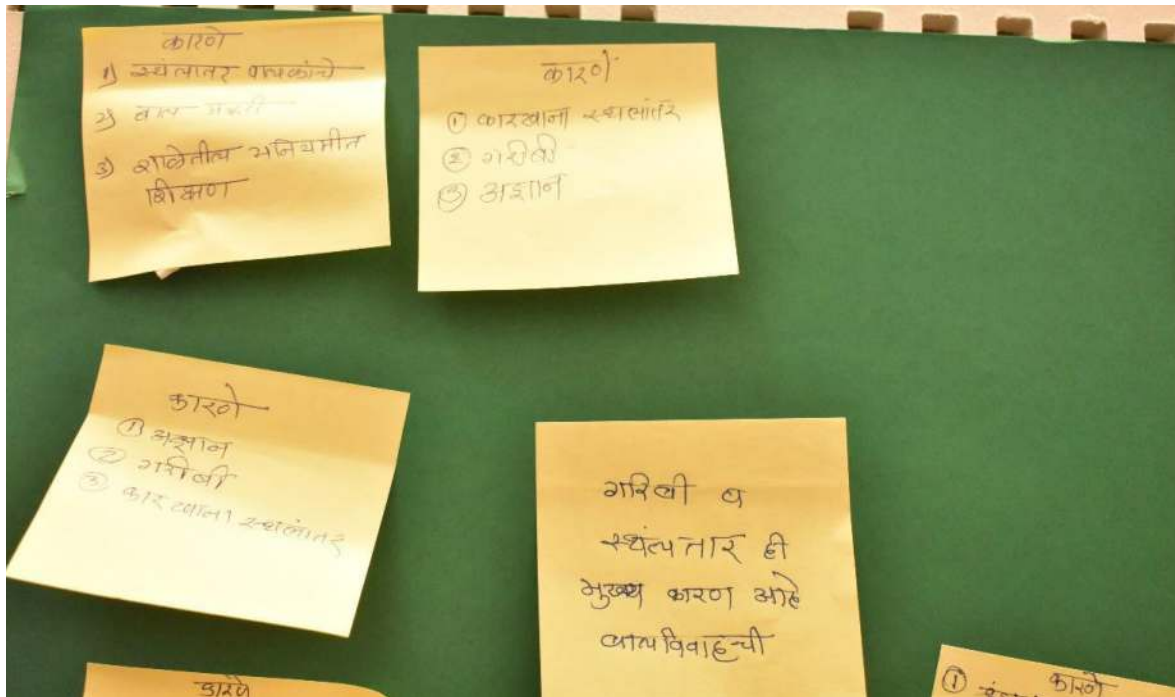 कारणे
१) स्थंलातर पालकांचे
२) बाल मजुरी
३) शाळेतील अनियमीत
शिक्षण
कारणे
① कारखाना स्थलांतर
② गरीबी
③ अज्ञान
कारणे
① अज्ञान
② गरीबी
③ कारखाना स्थलांतर
गरिबी व
स्थंलतार ही
मुख्य कारण आहे
बालविवाहची
कारणे
① कारणे